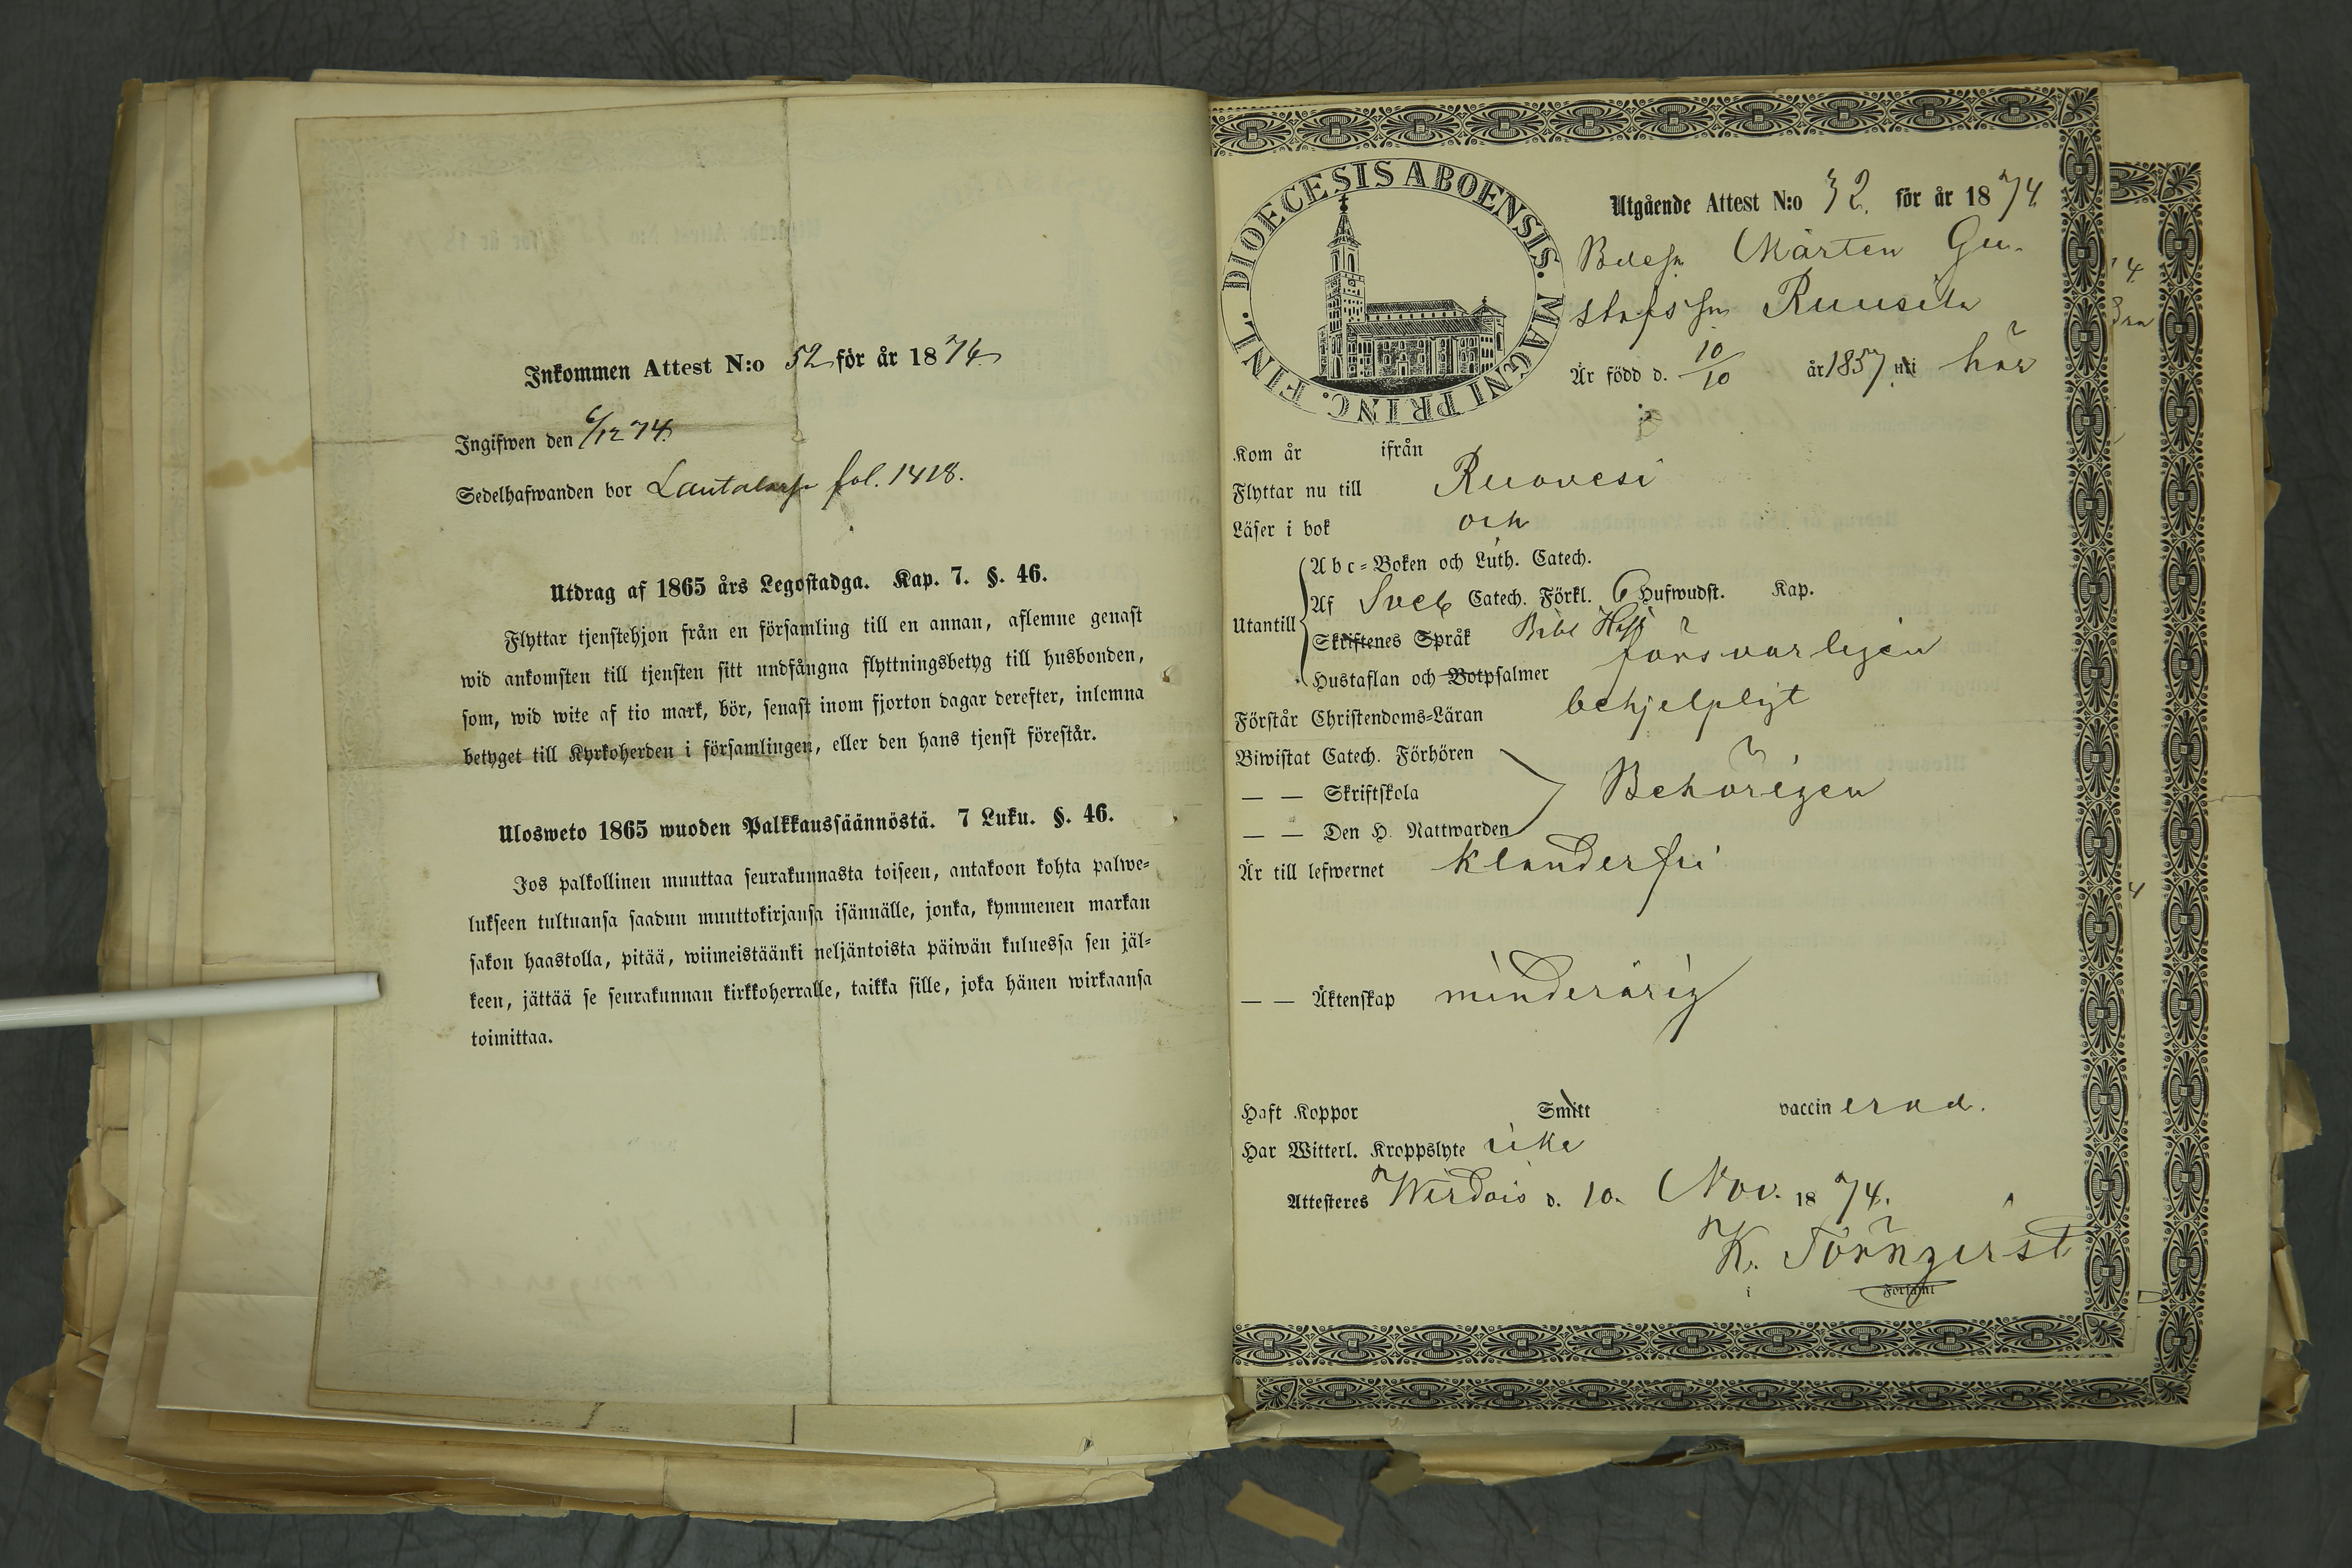 Inkommen Attest N:o 52 för år 1874
Ingifwen den 6/12 74.
Sedelhafwanden bor fol. 1418.
Utdrag af 1865 års Legostadga. Kap. 7. §. 46.
Flyttar tjenstehjon från en församling till en annan, aflemne genast
wid ankomsten till tjensten sitt undfångna flyttningsbetyg till husbonden,
som, wid wite af tio mark, bör, senast inom fjorton dagar derefter, inlemna
betyget till Kyrkoherden i församlingen, eller den hans tjenst förestår.
Ulosweto 1865 wuoden Palkkaussäännöstä. 7 Luku. §. 46.
Jos palkollinen muuttaa seurakunnasta toiseen, antakoon kohta palwe-
lukseen tultuansa saadun muuttokirjansa isännälle, jonka, kymmenen markan
sakon haastolla, pitää, wiimeistäänki neljäntoista päiwän kuluessa sen jäl-
keen, jättää se seurakunnan kirkkoherralle, taikka sille, joka hänen wirkaansa
toimittaa.
DIOECESIS ABOENSIS. MAGNI PRINC. FINL.
Utgående Attest N:o 32. för år 1874
Mårten Gu-
stafsson Ruusila
Är född d. 10/10 år 1857 uti här
Kom år ifrån
Flyttar nu till Ruovesi
Läser i bok och
Utantill
Abc-Boken och Luth. Catech.
Af Sveb Catech. Förkl. 6 Hufwudst. Kap.
Skriftenes Språk Bibl Hist
försvarligen
Hustaflan och Botpsalmer
Förstår Christendoms-Läran behjelpligt
Biwistat Catech. Förhören
— — Skriftskola Behörigen
— — Den H. Nattwarden
Är till lefwernet klanderfri
— — Äktenskap minderårig
Haft Koppor Smitt vaccinerad.
Har Witterl. Kroppslyte icke
Attesteres Wirdois d. 10. Nov. 1874.
K. Törnqvist
i Församl